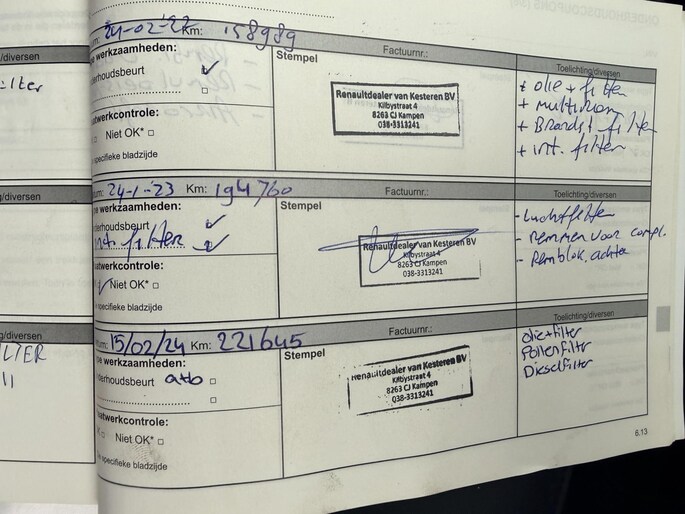 ONDERHOUDSCOUPONS (BH)
24-02-'22 Km: 158989
e werkzaamheden:
Factuurnr.:
Toelichting/diversen
derhoudsbeurt ✓
Stempel
Renaultdealer van Kesteren BV
Kilbystraat 4
8263 CJ Kampen
038-3313241
+ olie + filter
+ multiscan
+ Brandst filter
+ int. filter
atwerkcontrole:
Niet OK* □
specifieke bladzijde
g/diversen
24-1-'23 Km: 194760
e werkzaamheden:
Factuurnr.:
Toelichting/diversen
derhoudsbeurt ✓
int. filter ✓
Stempel
Renaultdealer van Kesteren BV
Kilbystraat 4
8263 CJ Kampen
038-3313241
- Luchtfilter
- remmen voor compl.
- Remblok. achter
atwerkcontrole:
Niet OK* □
specifieke bladzijde
g/diversen
15/02/24 Km: 221645
e werkzaamheden:
Factuurnr.:
Toelichting/diversen
derhoudsbeurt a+b □
Stempel
Renaultdealer van Kesteren BV
Kilbystraat 4
8263 CJ Kampen
038-3313241
olie+filter
Pollenfilter
Dieselfilter
atwerkcontrole:
Niet OK* □
specifieke bladzijde
g/diversen
6.13